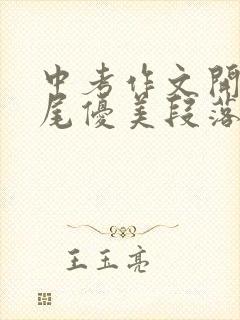 中考作文開
尾優美段落
王玉亮